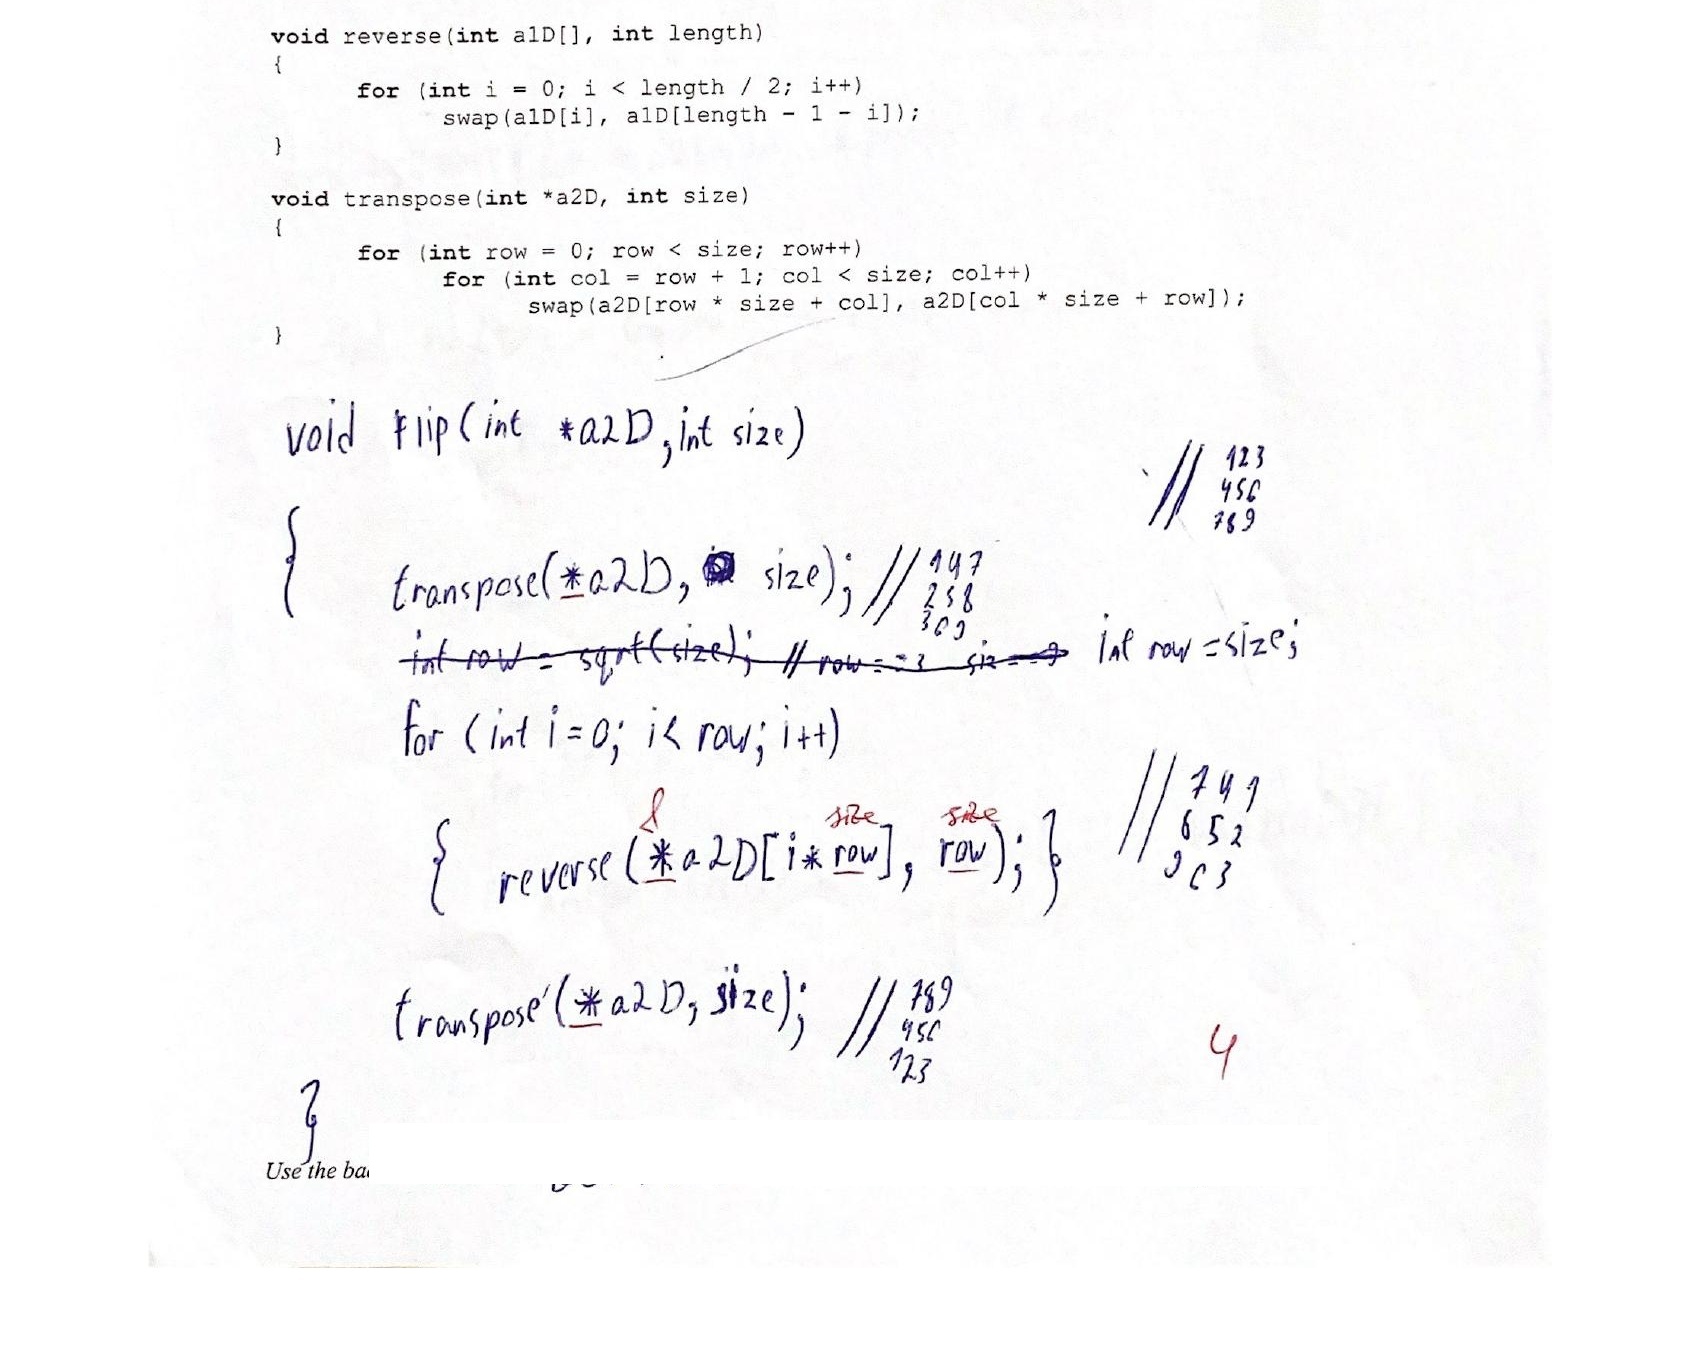 void reverse(int a1D[], int length)
{
for (int i = 0; i < length / 2; i++)
swap(a1D[i], a1D[length - 1 - i]);
}
void transpose(int *a2D, int size)
{
for (int row = 0; row < size; row++)
for (int col = row + 1; col < size; col++)
swap(a2D[row * size + col], a2D[col * size + row]);
}
void flip(int *a2D, int size)
// 123
456
789
{
transpose(*a2D, size); // 147
258
369
int row = sqrt(size); // row == 3 int row = size;
for (int i=0; i< row; i++)
& size size
{ reverse (*a2D[i* row], row); } // 741
652
963
transpose (*a2D, size); // 789
456
123
4
}
Use the